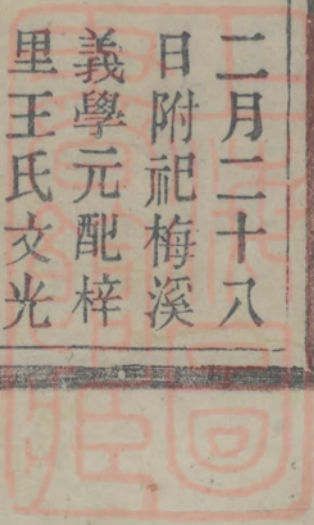 二月二十八
日附祀梅溪
義學元配梓
里王氏文光